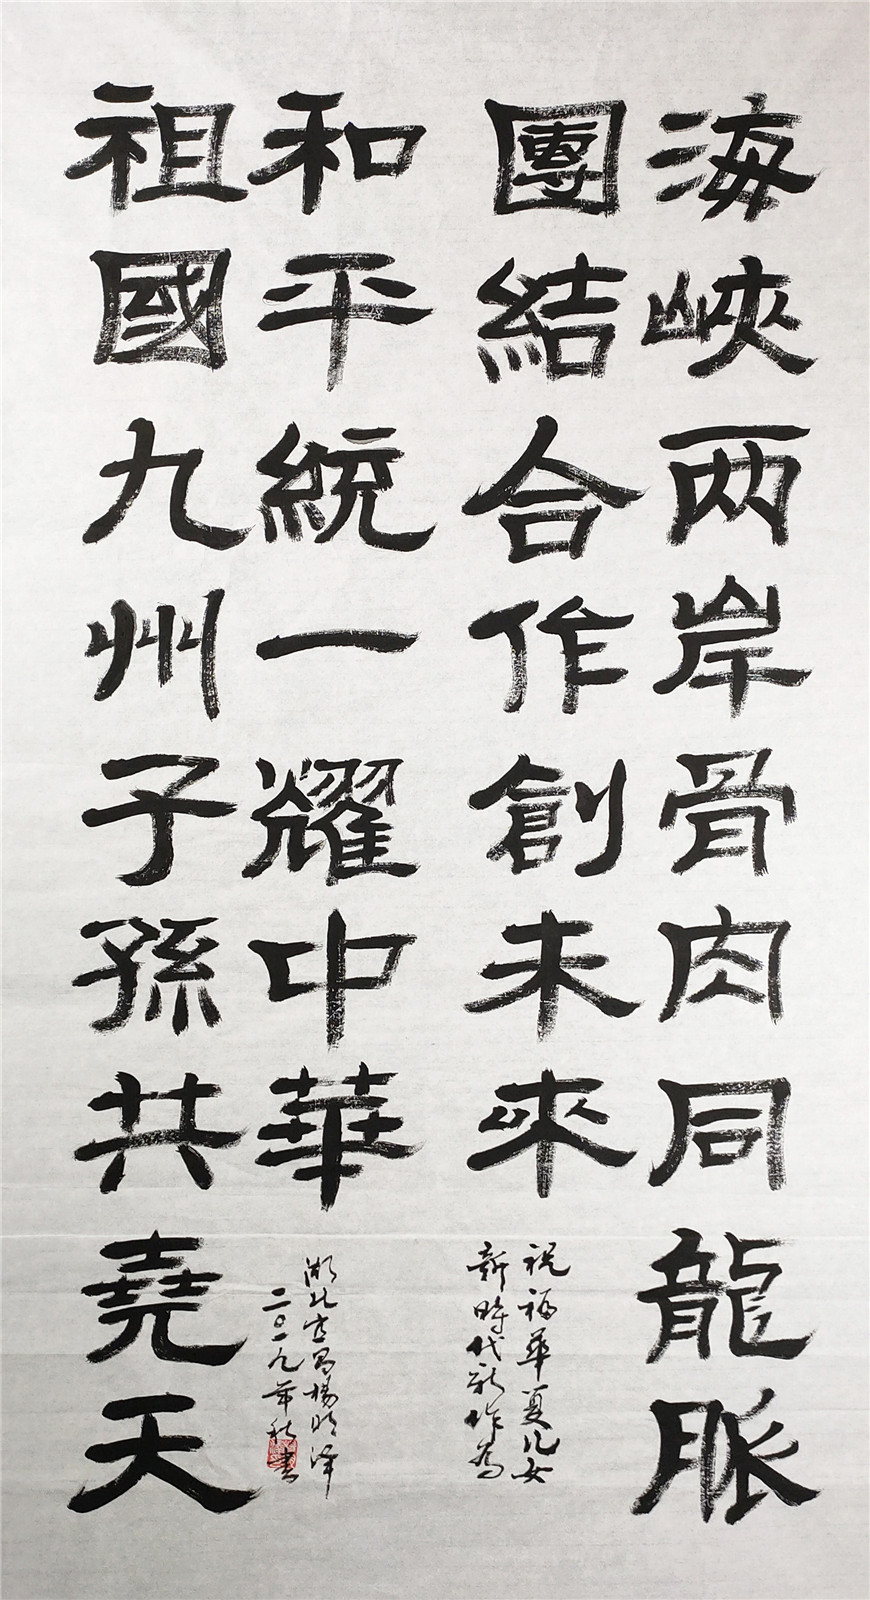 海峽两岸骨肉同龍脈
團結合作創未來
祝福華夏儿女
新時代新作為
和平統一耀中華
湖北宜昌楊明泽
二〇一九年秋書
祖國九州子孫共堯天